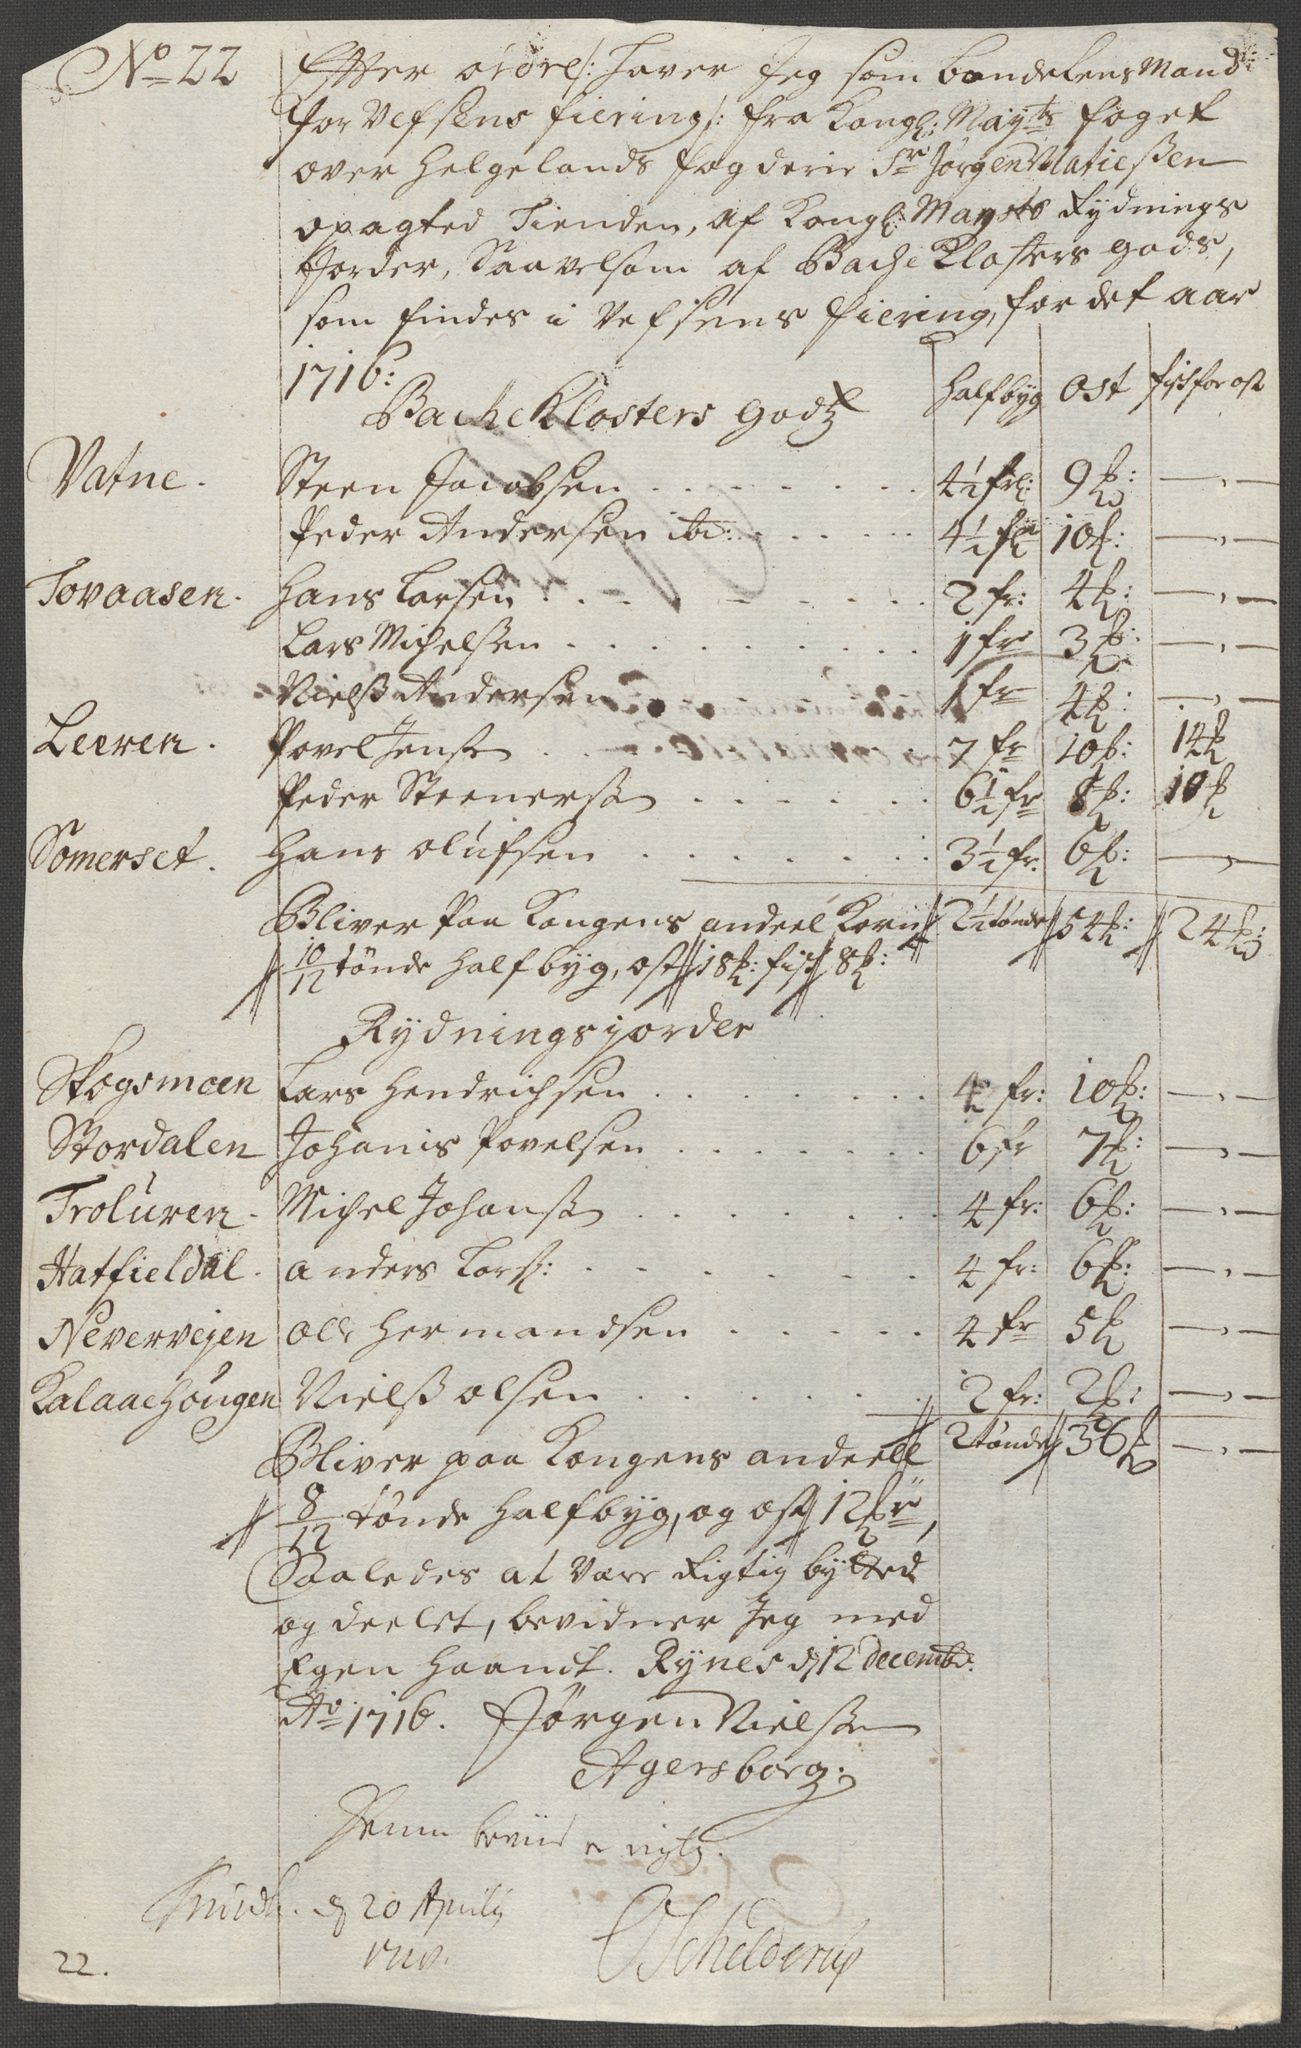 No 22 Efter ordre/: haver Jeg som bondelens Mand
for Vefsens fiering/: fra Kongl: Mayts foget
over Helgelands fogderie Sr Jørgen Matiessen
opagted Tienden, af Kongl: Maysts Rydnings
Jorder, Saavelsom af Bache Klosters gods,
som findes i Vefsens fiering, for det aar
1716:
Bache Klosters godz halfbyg Ost fisk for ost
Vatne. Steen Jacobsen 4½ fr: 9 : — , —
Peder Andersen ibd: 4½ fr 10 : — , —
Tovaasen. Hans Larsen 2 fr: 4 : — , —
Lars Michelssen 1 fr 3 : — , —
Nielss Andersen 1 fr 4 : — , —
Leeren. Povel Jenss 7 fr 10 : 14
Peder Steenerss 6½ fr 8 : 10
Somerset. Hans Olufsen 3½ fr. 6 : — ,
Bliver Paa Kongens andeel Korn 2½ tønde 54 : 24 :
10/12 tønde halfbyg, ost 18 : fisk 8 :
Rydningsjorder
Skogsmoen Lars Hendrichsen 4 fr: 10 : — , —
Stordalen Johanis Povelsen 6 fr 7 : — , —
Troluren. Michel Johanss 4 fr: 6 : — , —
Hatfieldal. Anders Larss: 4 fr: 6 : — , —
Nevervejen Ole Hermandsen 4 fr 5 — , —
Kalaaehougen Nielss Olsen 2 fr: 2 : — , —
Bliver paa Kongens andeell 2 tønde 36 — , —
8/12 tønde halfbyg, og ost 12 ,
Saaledes at være Rigtig bytted
og deelet, bevidner Jeg med
Egen haandt. Rynes d 12 decembr:
Ao 1716. Jørgen Nielss
Agersborg.
Denne beviis er rigtig.
d 20 Aprily
OSchelderup
22.